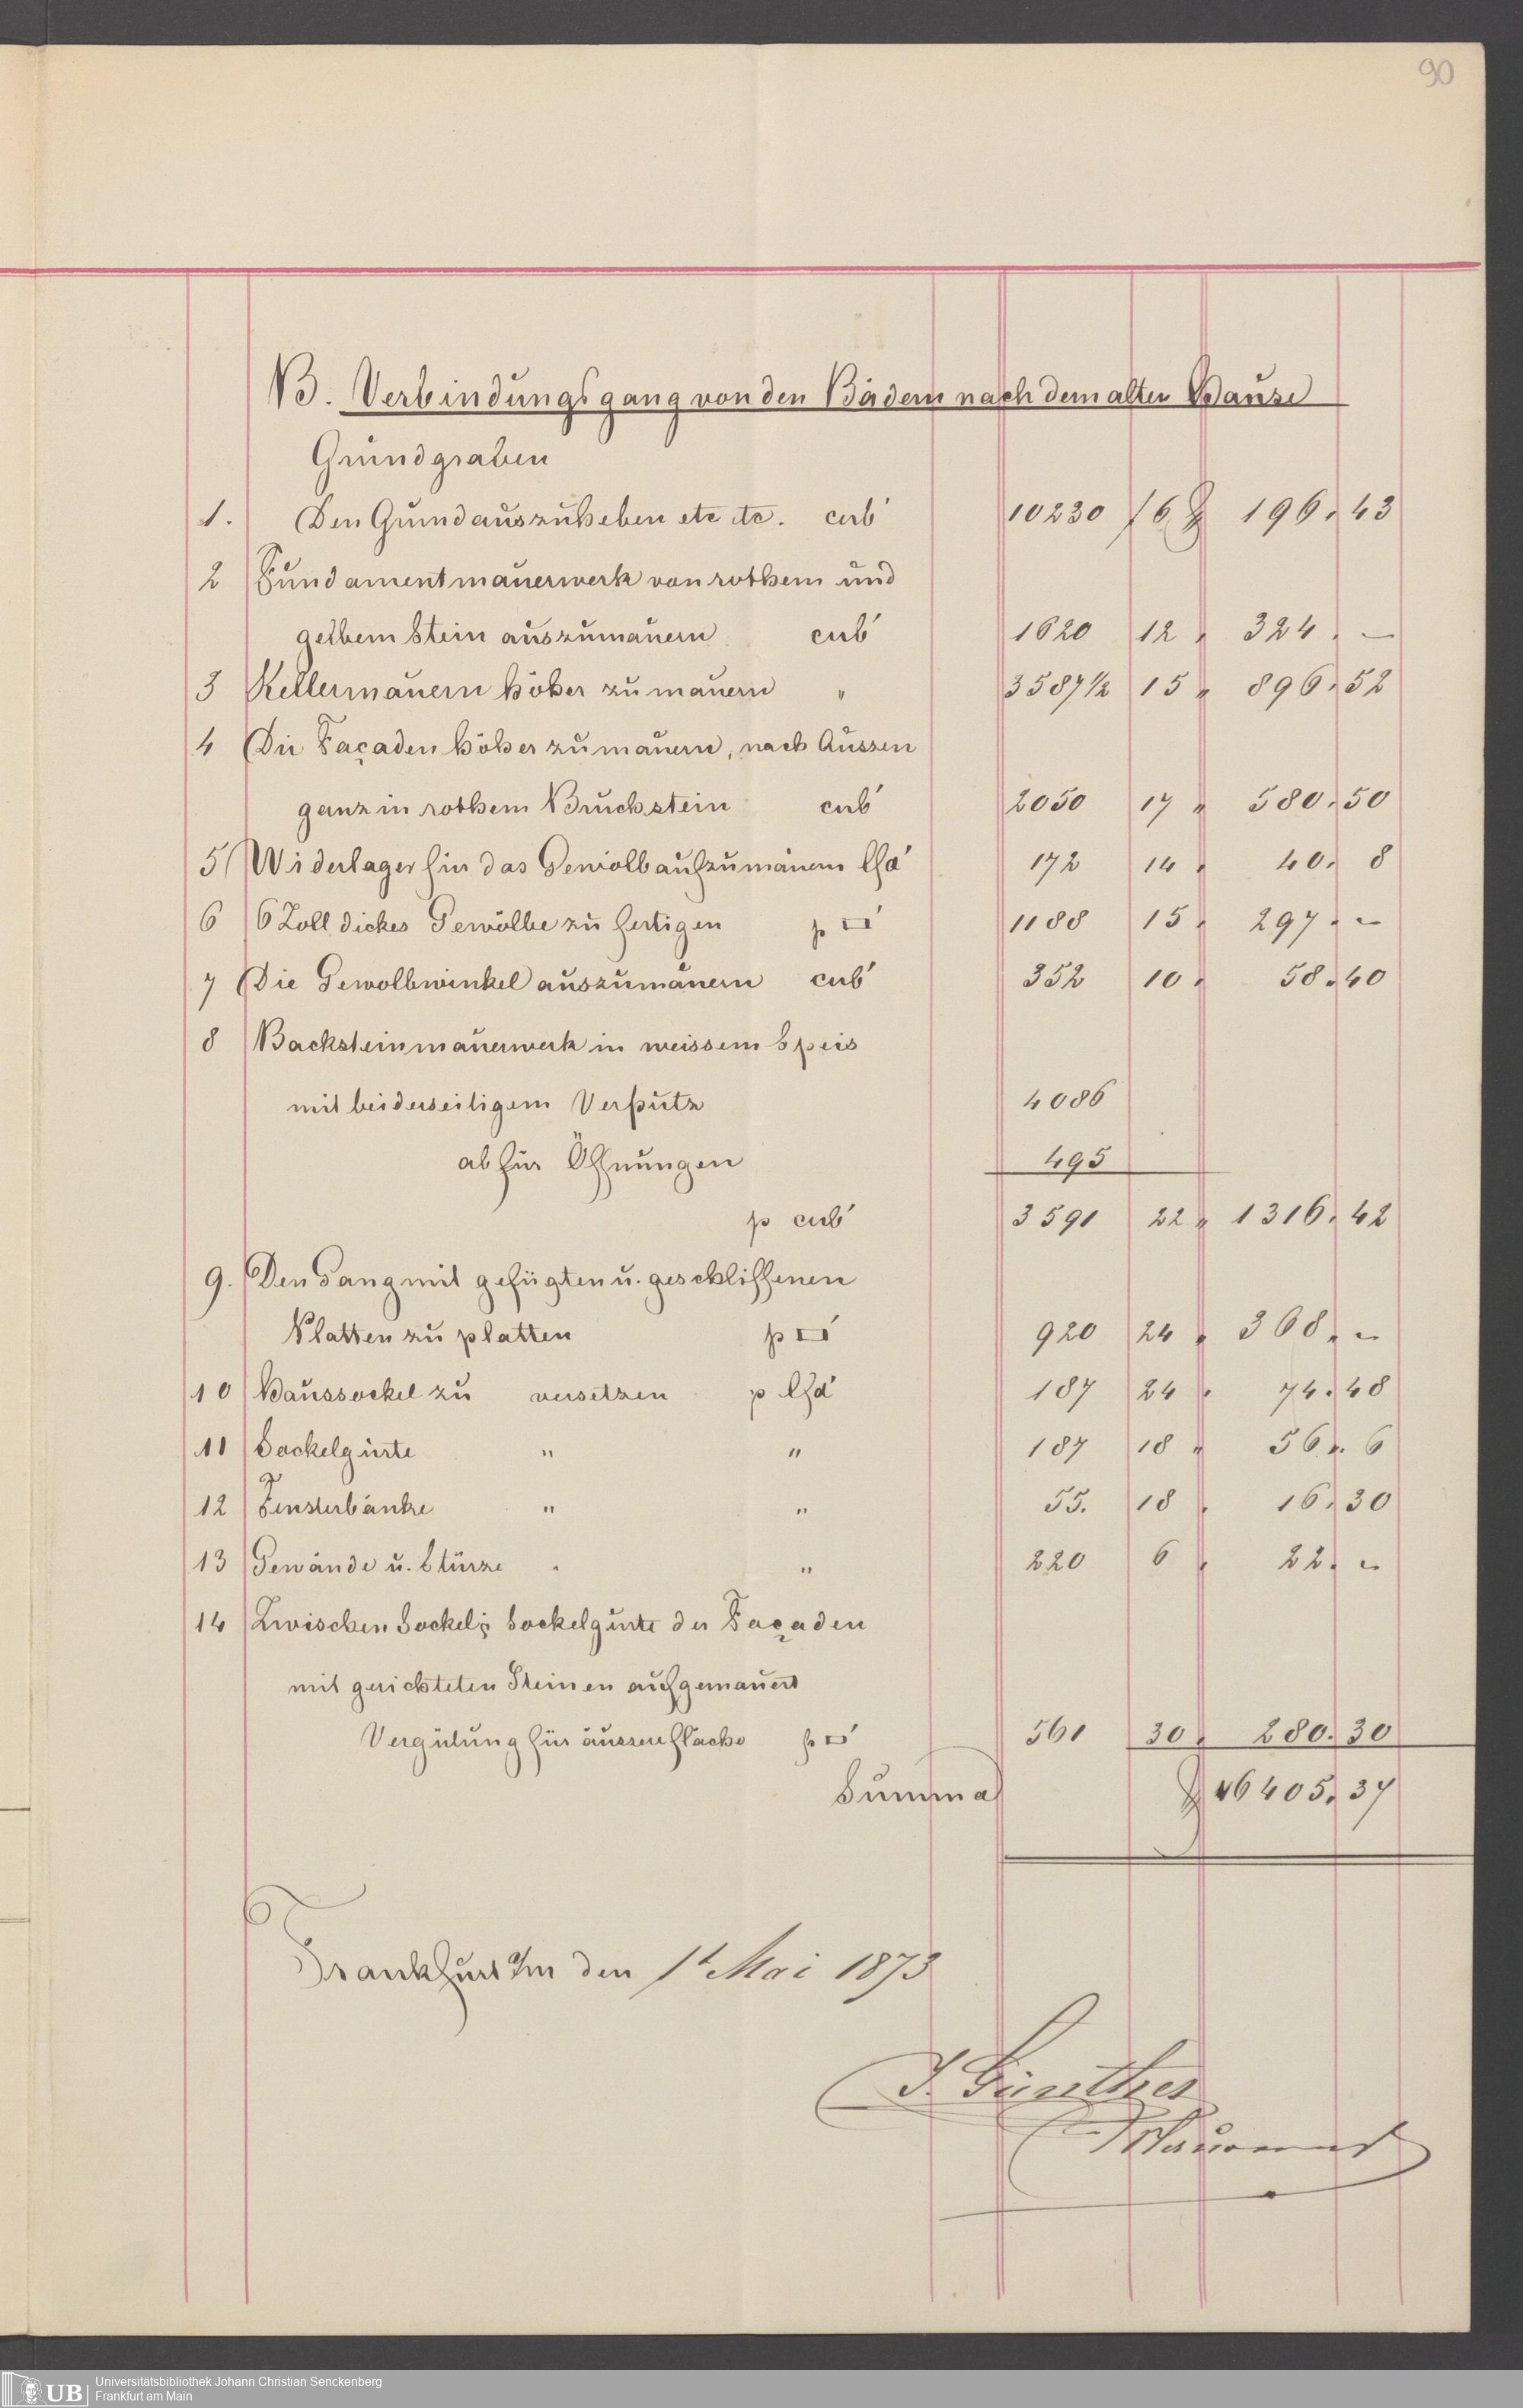 90
B. Verbindungsgang von den Bädern nach dem alten Hause
Grundgraben
1. Den Grund auszuheben etc etc. cub' 10230 /6 f 196. 43
2 Fundamentmauerwerk von rothem und
gelbem Stein auszumauern cub' 1620 12 " 324. —
3 Kellermauern höher zu mauern " 3587½ 15 " 896. 52
4 Die Façaden höher zu mauern, nach Aussen
ganz in rothem Bruchstein cub' 2050 17 " 580. 50
5 Widerlager für das Gewölb aufzumauern lfd' 172 14 " 40. 8
6 6 Zoll dickes Gewölbe zu fertigen p □' 1188 15 " 297. –
7 Die Gewölbwinkel auszumauern cub' 352 10 " 58. 40
8 Backsteinmauerwerk in weissem Speis
mit beiderseitigem Verputz 4086
ab für Öffnungen 495
p cub' 3591 22 " 1316. 42
9. Den Gang mit gefügten u. geschliffenen
Platten zu platten p □' 920 24 " 368. –
10 Haussockel zu versetzen p lfd' 187 24 " 74. 48
11 Sockelgurte " " 187 18 " 56. 6
12 Fensterbänke " " 55. 18 " 16. 30
13 Gewände u. Stürze " " 220 6 " 22. –
14 Zwischen Sockel & Sockelgurte der Façaden
mit gerichteten Steinen aufgemauert
Vergütung für äussere Fläche p □' 561 30 " 280. 30
Summa f 6405. 37
Frankfurt a/m den 1t Mai 1873
J. Günther
UB
Universitätsbibliothek Johann Christian Senckenberg
Frankfurt am Main